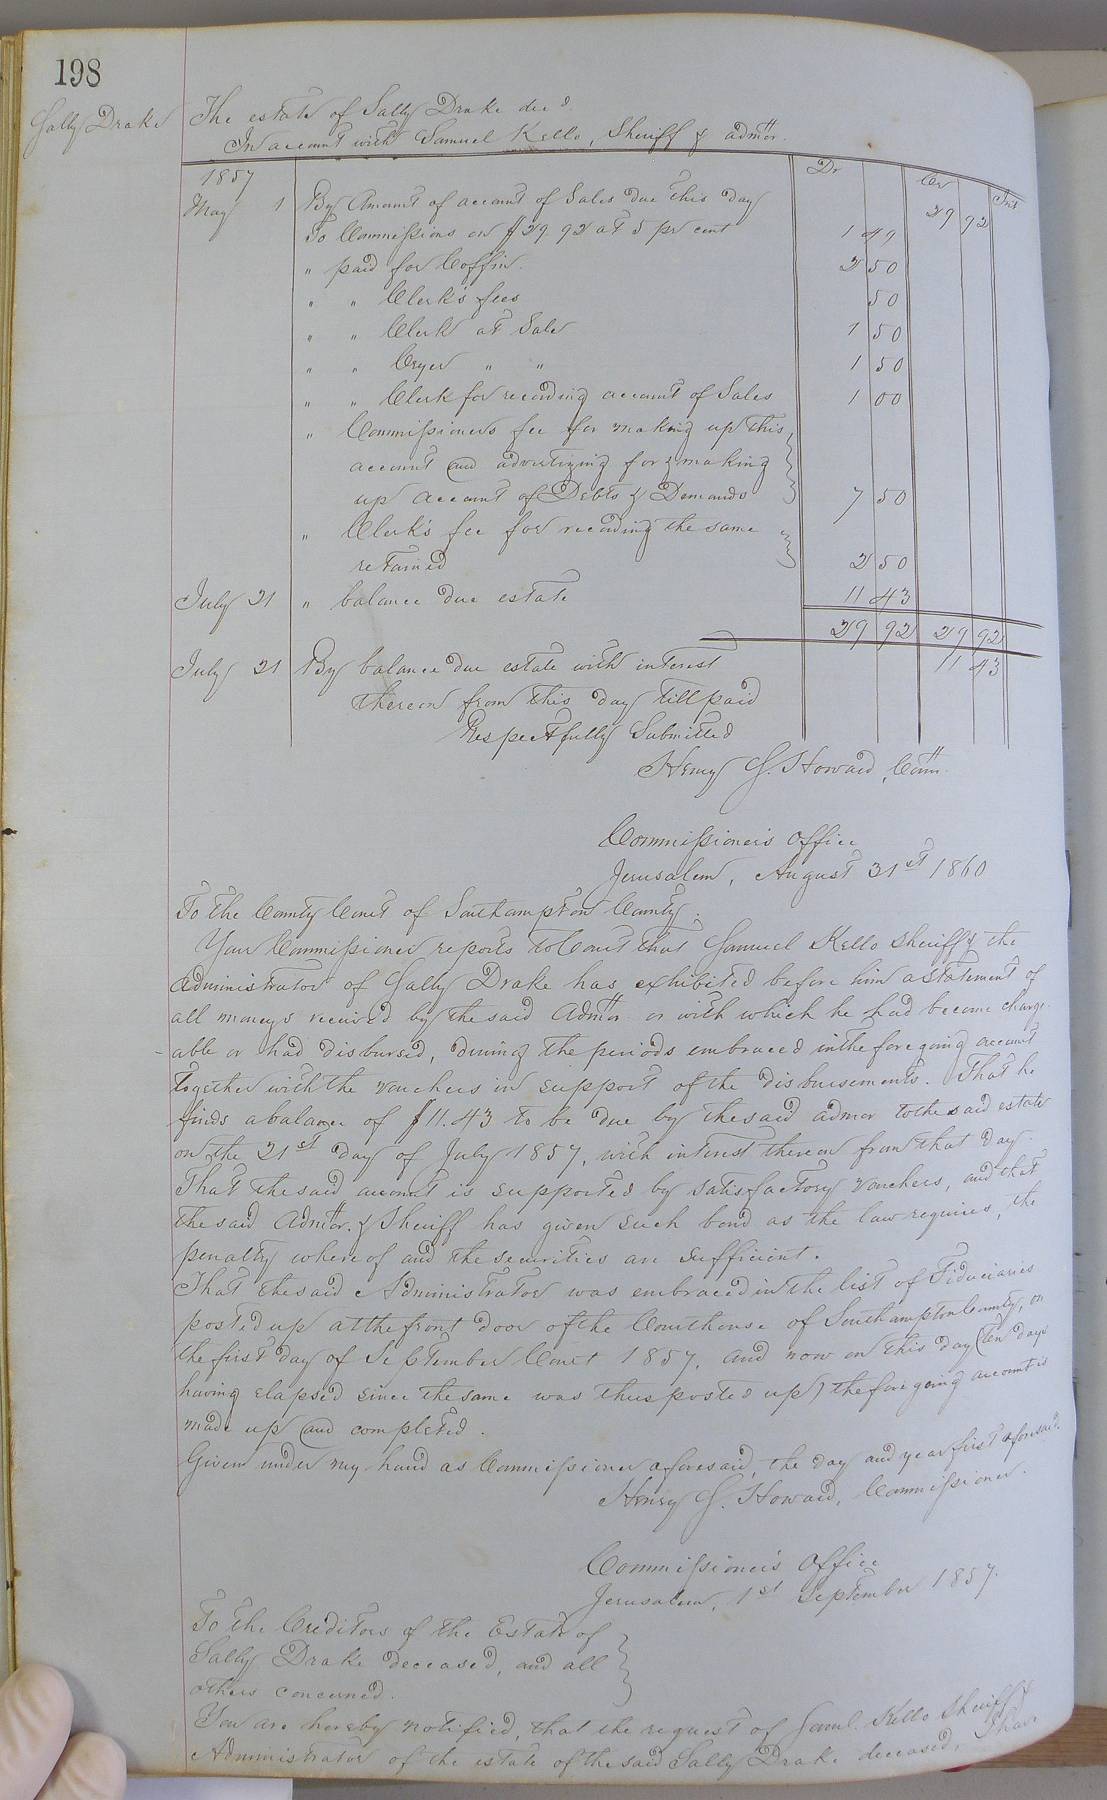 198
Sally Drake
The estate of Sally Drake decd.
In account with Samuel Kello, Sheriff & admor.
Dr Cr Int
1857
May 1 By Amount of account of Sales due this day 29 92
To Commissions on $29.92 at 5 pr cent 1 49
" paid for Coffin. 2 50
" " Clerk's fees 50
" " Clerk at Sale 1 50
" " Cryer " " 1 50
" " Clerk for recording account of Sales 1 00
" Commissioners fee for making up this
account and advertizing for & making
up account of Debts & Demands 7 50
" Clerk's fee for recording the same
retained 2 50
July 21 " balance due estate 11 43
29 92 29 92
July 21 By balance due estate with interest 11 43
thereon from this day till paid
Respectfully Submitted
Henry G. Howard, Comr.
Commissioner's Office
Jerusalem, August 31st 1860
To the County Court of Southampton County:
Your Commissioner reports to Court that Samuel Kello Sheriff & the
Administrator of Sally Drake has exhibited before him a statement of
all moneys received by the said Admor or with which he had become charge-
able or had disbursed, during the periods embraced in the foregoing account
together with the vouchers in support of the disbursements. That he
finds a balance of $11.43 to be due by the said admor to the said estate
on the 21st day of July 1857, with interest thereon from that day.
That the said account is supported by satisfactory vouchers, and that
the said Admor. & Sheriff has given such bond as the law requires, the
penalty whereof and the securities are sufficient.
That the said Administrator was embraced in the list of Fiduciaries
posted up at the front door of the Courthouse of Southampton County, on
the first day of September Court 1857, and now on this day (ten days
having elapsed since the same was thus posted up) the foregoing account is
made up and completed.
Given under my hand as Commissioner aforesaid, the day and year first aforesaid.
Henry G. Howard, Commissioner.
Commissioner's Office
Jerusalem, 1st September 1857.
To the Creditors of the Estate of
Sally Drake deceased, and all
others concerned.
You are hereby notified, that the request of Saml. Kello Sheriff &
Administrator of the estate of the said Sally Drake deceased, I have